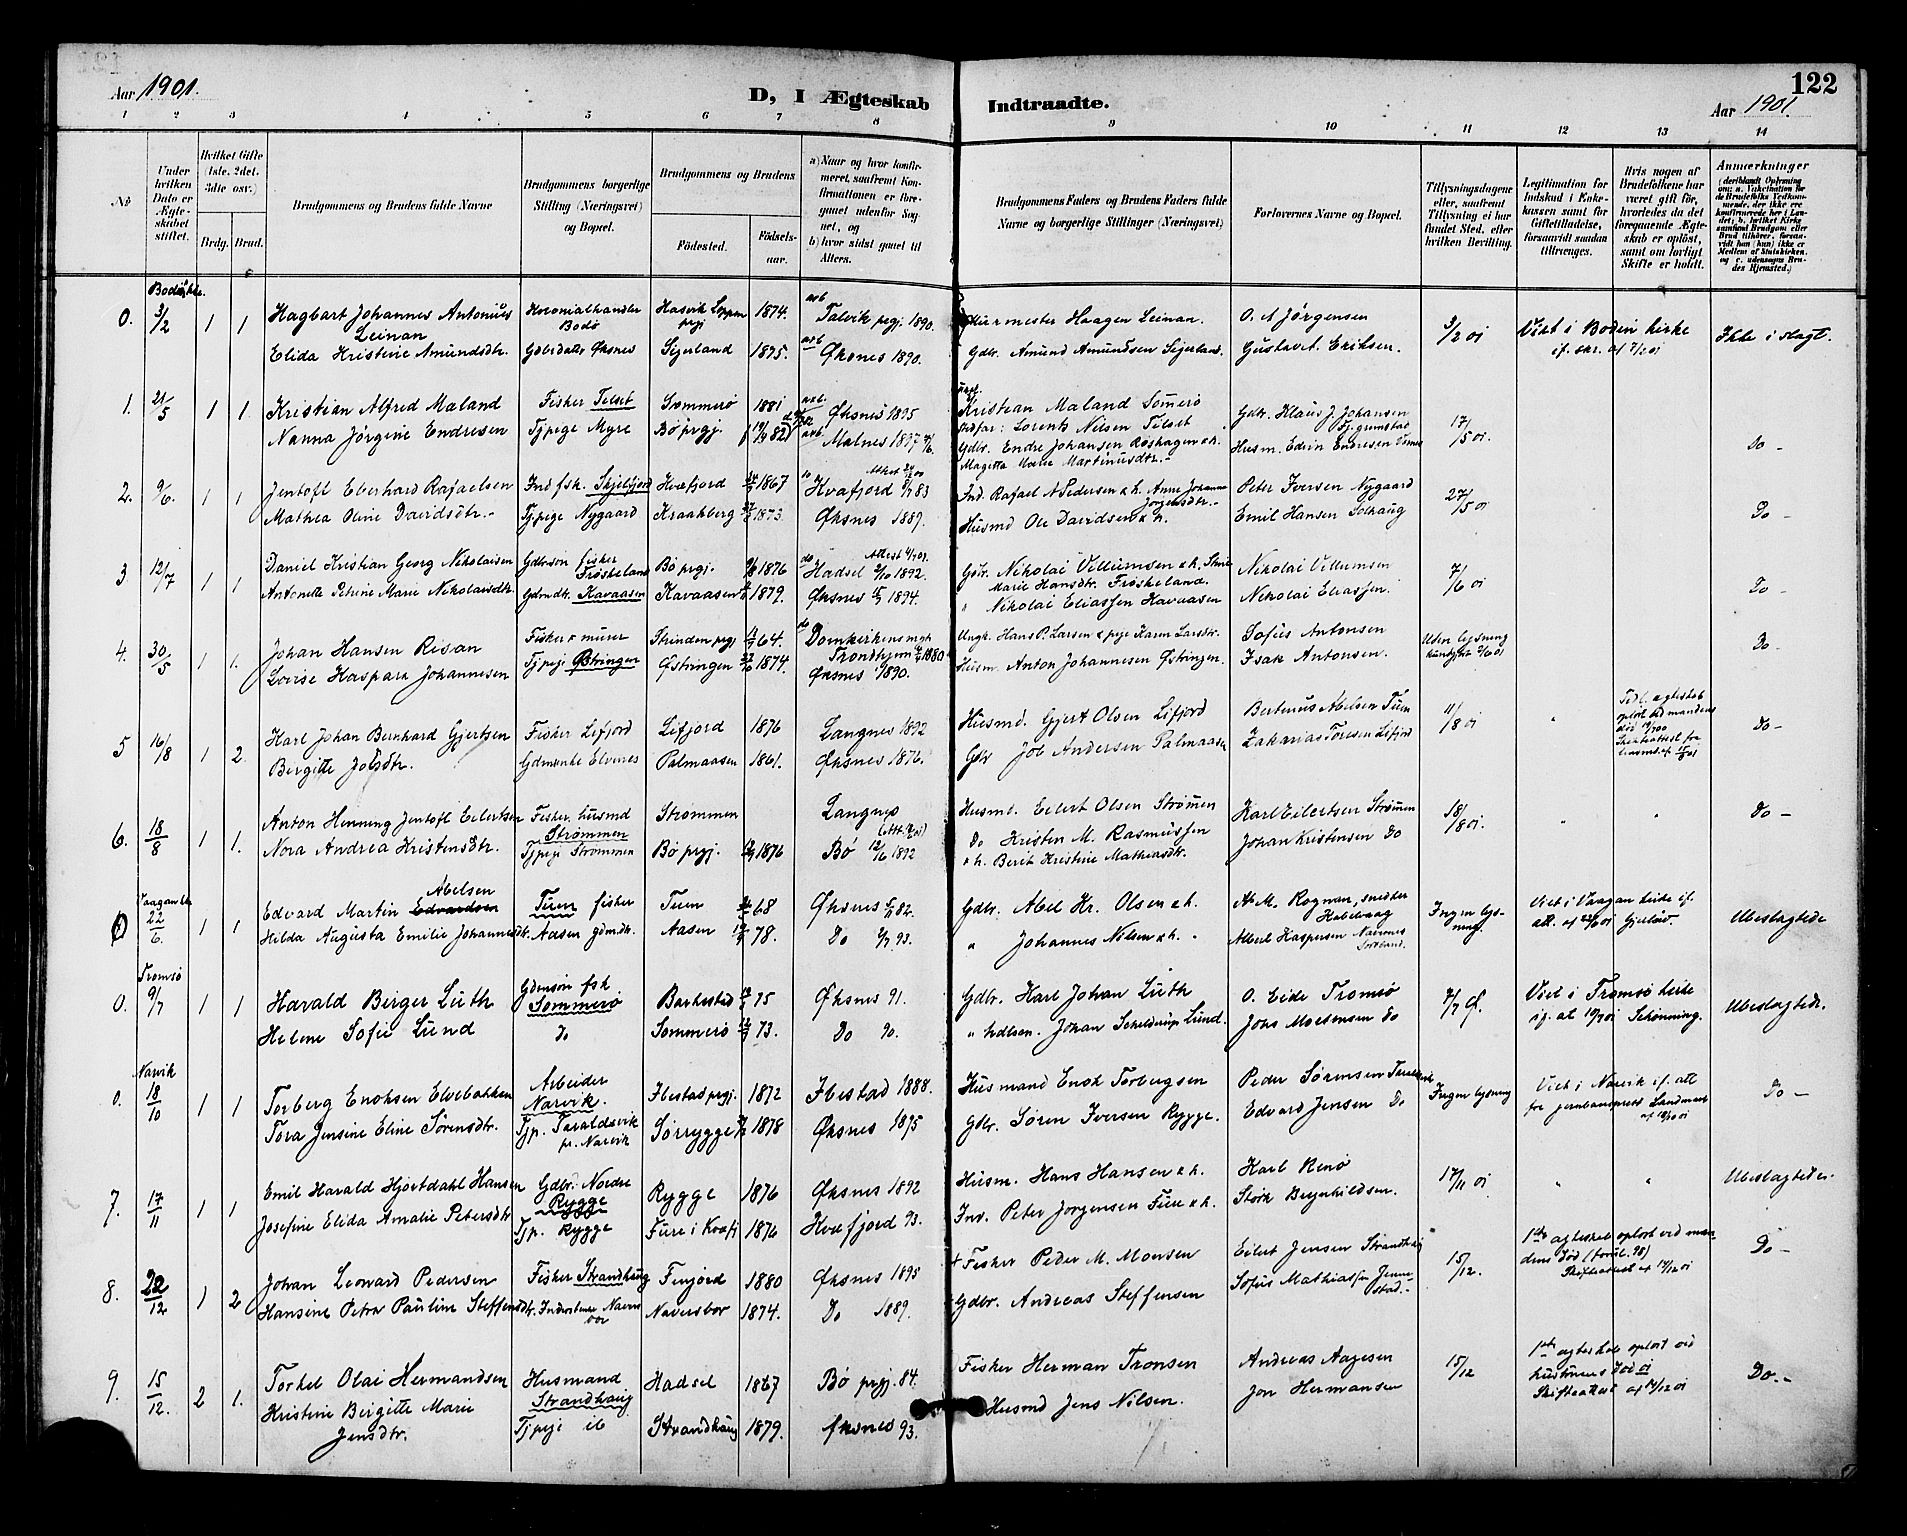 Aar 1901.
D, I Ægteskab Indtraadte.
122
Aar 1901.
1 2 3 4 5 6 7 8 9 10 11 12 13 14
No
Under hvilken Dato er Ægteskabet stiftet.
Hvilket Gifte (1ste, 2det, 3die osv.)
Brdg. Brud.
Brudgommens og Brudens fulde Navne
Brudgommens borgerlige Stilling (Næringsvei) og Bopæl.
Brudgommens og Brudens
Fødested. Fødselsaar.
a) Naar og hvor konfirmeret, saafremt Konfirmationen er foregaaet udenfor Sognet, og
b) hvor sidst gaaet til Alters.
Brudgommens Faders og Brudens Faders fulde Navne og borgerlige Stillinger (Næringsvei)
Forlovernes Navne og Bopæl.
Tillysningsdagene eller, saafremt Tillysning ei har fundet Sted, efter hvilken Bevilling.
Legitimation for Indskud i Enkekassen samt for Giftetilladelse, forsaavidt saadan tiltrænges.
Hvis nogen af Brudefolkene har været gift før, hvorledes da det foregaaende Ægteskab er opløst, samt om lovligt Skifte er holdt.
Anmærkninger
0. 3/2 1 1 Hagbart Johannes Antonius Leinan
Kolonialhandler Bodø Hasvik Loppen prgj 1874. Talvik prgj. 1890.
Skirmester Haagen Leinan. O. A Jørgensen 3/2 01 Viet i Bodin kirke if. skr. af 7/2 01 Ikke i slægt.
Elida Kristine Amundsdtr. Øksnes Sejerland 1875. Øksnes 1890.
Gdbr. Amund Amundsen Sejerland. Gustav A. Eriksen.
1. 21/5 1 1. Kristian Alfred Maland Fisker Tilset Sommerø 1881 Øksnes 1895
Kristian Maland Somerø Gdbr. Klaus J. Johansen 17/5 01. Do -
Stedfar: Lorents Nilsen Tilset
Nanna Jørgine Endresen Tjpige Myre Bø prgj. 82 Malnes 1897
Gdbr. Endre Johansen Røshagen & h. Husm. Edvin Endresen
Magitta Marie Martinusdtr. -
2. 9/6. 1 1 Jentoft Eberhard Rafaelsen Ind fsk. Skjelfjord Kvæfjord 1867 Kvæfjord 83
Ind. Rafael A Pedersen & h. Anne Johanna Jørgensdtr. - Peter Iversen Nygaard 27/5 01 Do -
Mathea Oline Davidsdtr. - Tjpige Nygaard Kraakberg 1873. Øksnes 1889.
Husmd Ole Davidsen & h. Emil Hansen Solhaug
3. 12/7 1 1 Daniel Kristian Georg Nikolaisen Gdbrsøn fisker Frøskeland Bø prgj. 1876 Hadsel 2/10 1892.
Gdbr. Nikolai Villumsen & h. Marie Hansdtr. Frøskeland. Nikolai Villumsen 7/6 01 Do -
Antonette Petrine Marie Nikolaisdtr. Gdmdtr. Kavaasen Kavaasen 1879. Øksnes 1894.
" Nikolai Eliassen Kavaasen Nikolai Eliassen.
4. 30/5 1 1. Johan Hansen Risan Fisker & murer Strinden prgj 64. Domkirkens mgh Trondhjem 1880
Ungk. Hans P. Larsen & pige Karen Larsdtr. Sofus Antonsen Uden lysning Do -
Lovise Kaspara Johannesen Tjpige Østringen Østringen 1874. Øksnes 1890.
Husm. Anton Johannesen Østringen. Isak Antonsen.
5 16/8 1 2. Karl Johan Bernhard Gjertsen Fisker Lifjord Lifjord 1876 Langnes 1892
Husmd. Gjert Olsen Lifjord Bertinus Abelsen Tuen 11/8 01 " Do -
Birgitte Jobsdtr. Gdmenke Elvenes Palmaasen 1861. Øksnes 1876.
Gdbr Job Andersen Palmaasen Zakarias Toresen Lifjord
6. 18/8 1 1. Anton Henning Jentoft Eilertsen Fisker, husmd Strømmen Strømmen Langnes
Husmd. Eilert Olsen Strømen Karl Eilertsen Strømen 18/8 01. " " Do -
Nora Andrea Kristensdtr. Tjpige Strømmen Bø prgj. 1876 Bø 12/6 1892
Do Kristen M. Rasmussen & h. Berit Kristine Mathiasdtr. Johan Kristensen Do
0 22/6. 1 1 Edvard Martin Abelsen Tuen fisker Tuen 68 Øksnes 82.
Gdbr. Abel Kr. Olsen & h. A. M. Rognan, snedker Ingen lysning. Viet i Vaagan kirke if. att. af 22/6 01 Ubeslægtede
Hilda Augusta Emilie Johannesdtr. Aasen gdmdtr. Aasen 78. Do 93.
" Johannes Nilsen & h. Albert Kaspersen
Tromsø
0. 9/7 1 1 Harald Birger Lüth Gdmsøn fsk Sommerø Barkestad 75 Øksnes 91.
Gdbr. Karl Johan Lüth O. Eide Tromsø 7/7 01. Viet i Tromsø kirke if. at 10/7 01 Schønning. Ubeslægtede.
Helene Sofie Lund Do Sommerø 73. Do 90.
" hdlsm. Johan Scheldrup Lund. Johs Mortensen Do
Narvik
0. 18/10 1 1 Torberg Enoksen Elvebakken Arbeider Narvik. Ibestad prgj. 1872 Ibestad 1888.
Husmand Enok Torbergsen Peder Sørensen Taraldsvik Ingen lysning Viet i Narvik if. att Do -
Tora Jensine Eline Sørensdtr. Tjp. Taraldsvik pr. Narvik Sørrygge 1878 Øksnes 1895
Gdbr. Søren Iversen Rygge. Edvard Jensen Do
7. 17/11 1 1 Emil Harald Hjortdahl Hansen Gdbr. Nordre Rygge Rygge 1876 Øksnes 1892
Husm. Hans Hansen & h. Karl Renø 17/11 01 " " Ubeslægtede.
Josefine Elida Amalie Petersdtr Tjp. Rygge Fure i Kvæfj 1876 Kvæfjord 93.
Ind. Peter Jørgensen Fure & h. Stork Brynhildsen.
8. 22/12 1 2 Johan Leonard Pedersen Fisker Strandhaug Finjord 1880 Øksnes 1895
Fisker Peder M. Monsen Eilert Jensen Strandhaug 15/12. 1ste ægteskab opløst ved mandens død Skifteattest af 14/12 01 Do -
Hansine Petra Pauline Steffensdtr. Naversbor 1874. Do 1889.
Gdbr. Andreas Steffensen Sofus Mathiassen Jennestad. -
9. 15/12. 2 1. Torkel Olai Hermandsen Husmand Strandhaug Hadsel 1867 Bø prgj. 84.
Fisker Herman Tronsen Andreas Aagesen 15/12 1ste ægteskab opløst ved hustruens død 01 Skifteattest af 14/12 01 Do. -
Kristine Birgitte Marie Jensdtr. Tjpige ib Strandhaug 1879. Øksnes 93.
Husmd Jens Nilsen. Jon Hermansen